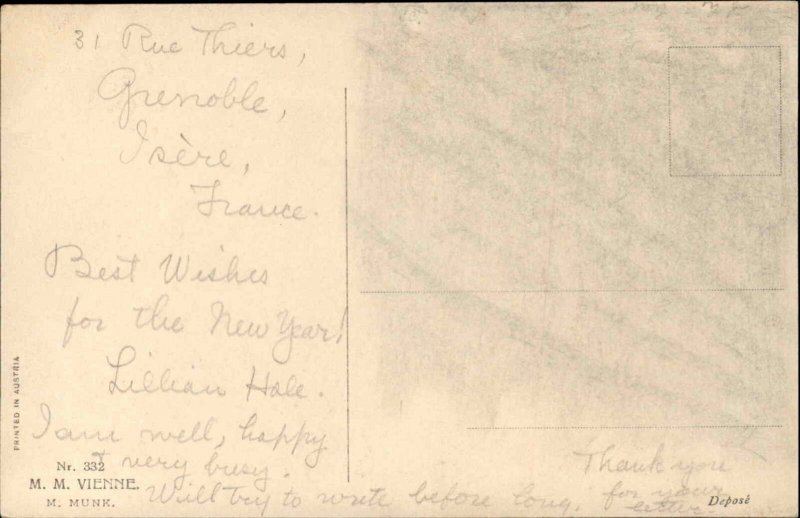 31 Rue Thiers,
Grenoble,
Isère,
France.
Best Wishes
for the New Year!
Lillian Hale.
I am well, happy
& very busy.
Will try to write before long.
Thank you
for your
letter.
PRINTED IN AUSTRIA
Nr. 332
M. M. VIENNE.
M. MUNK.
Deposé